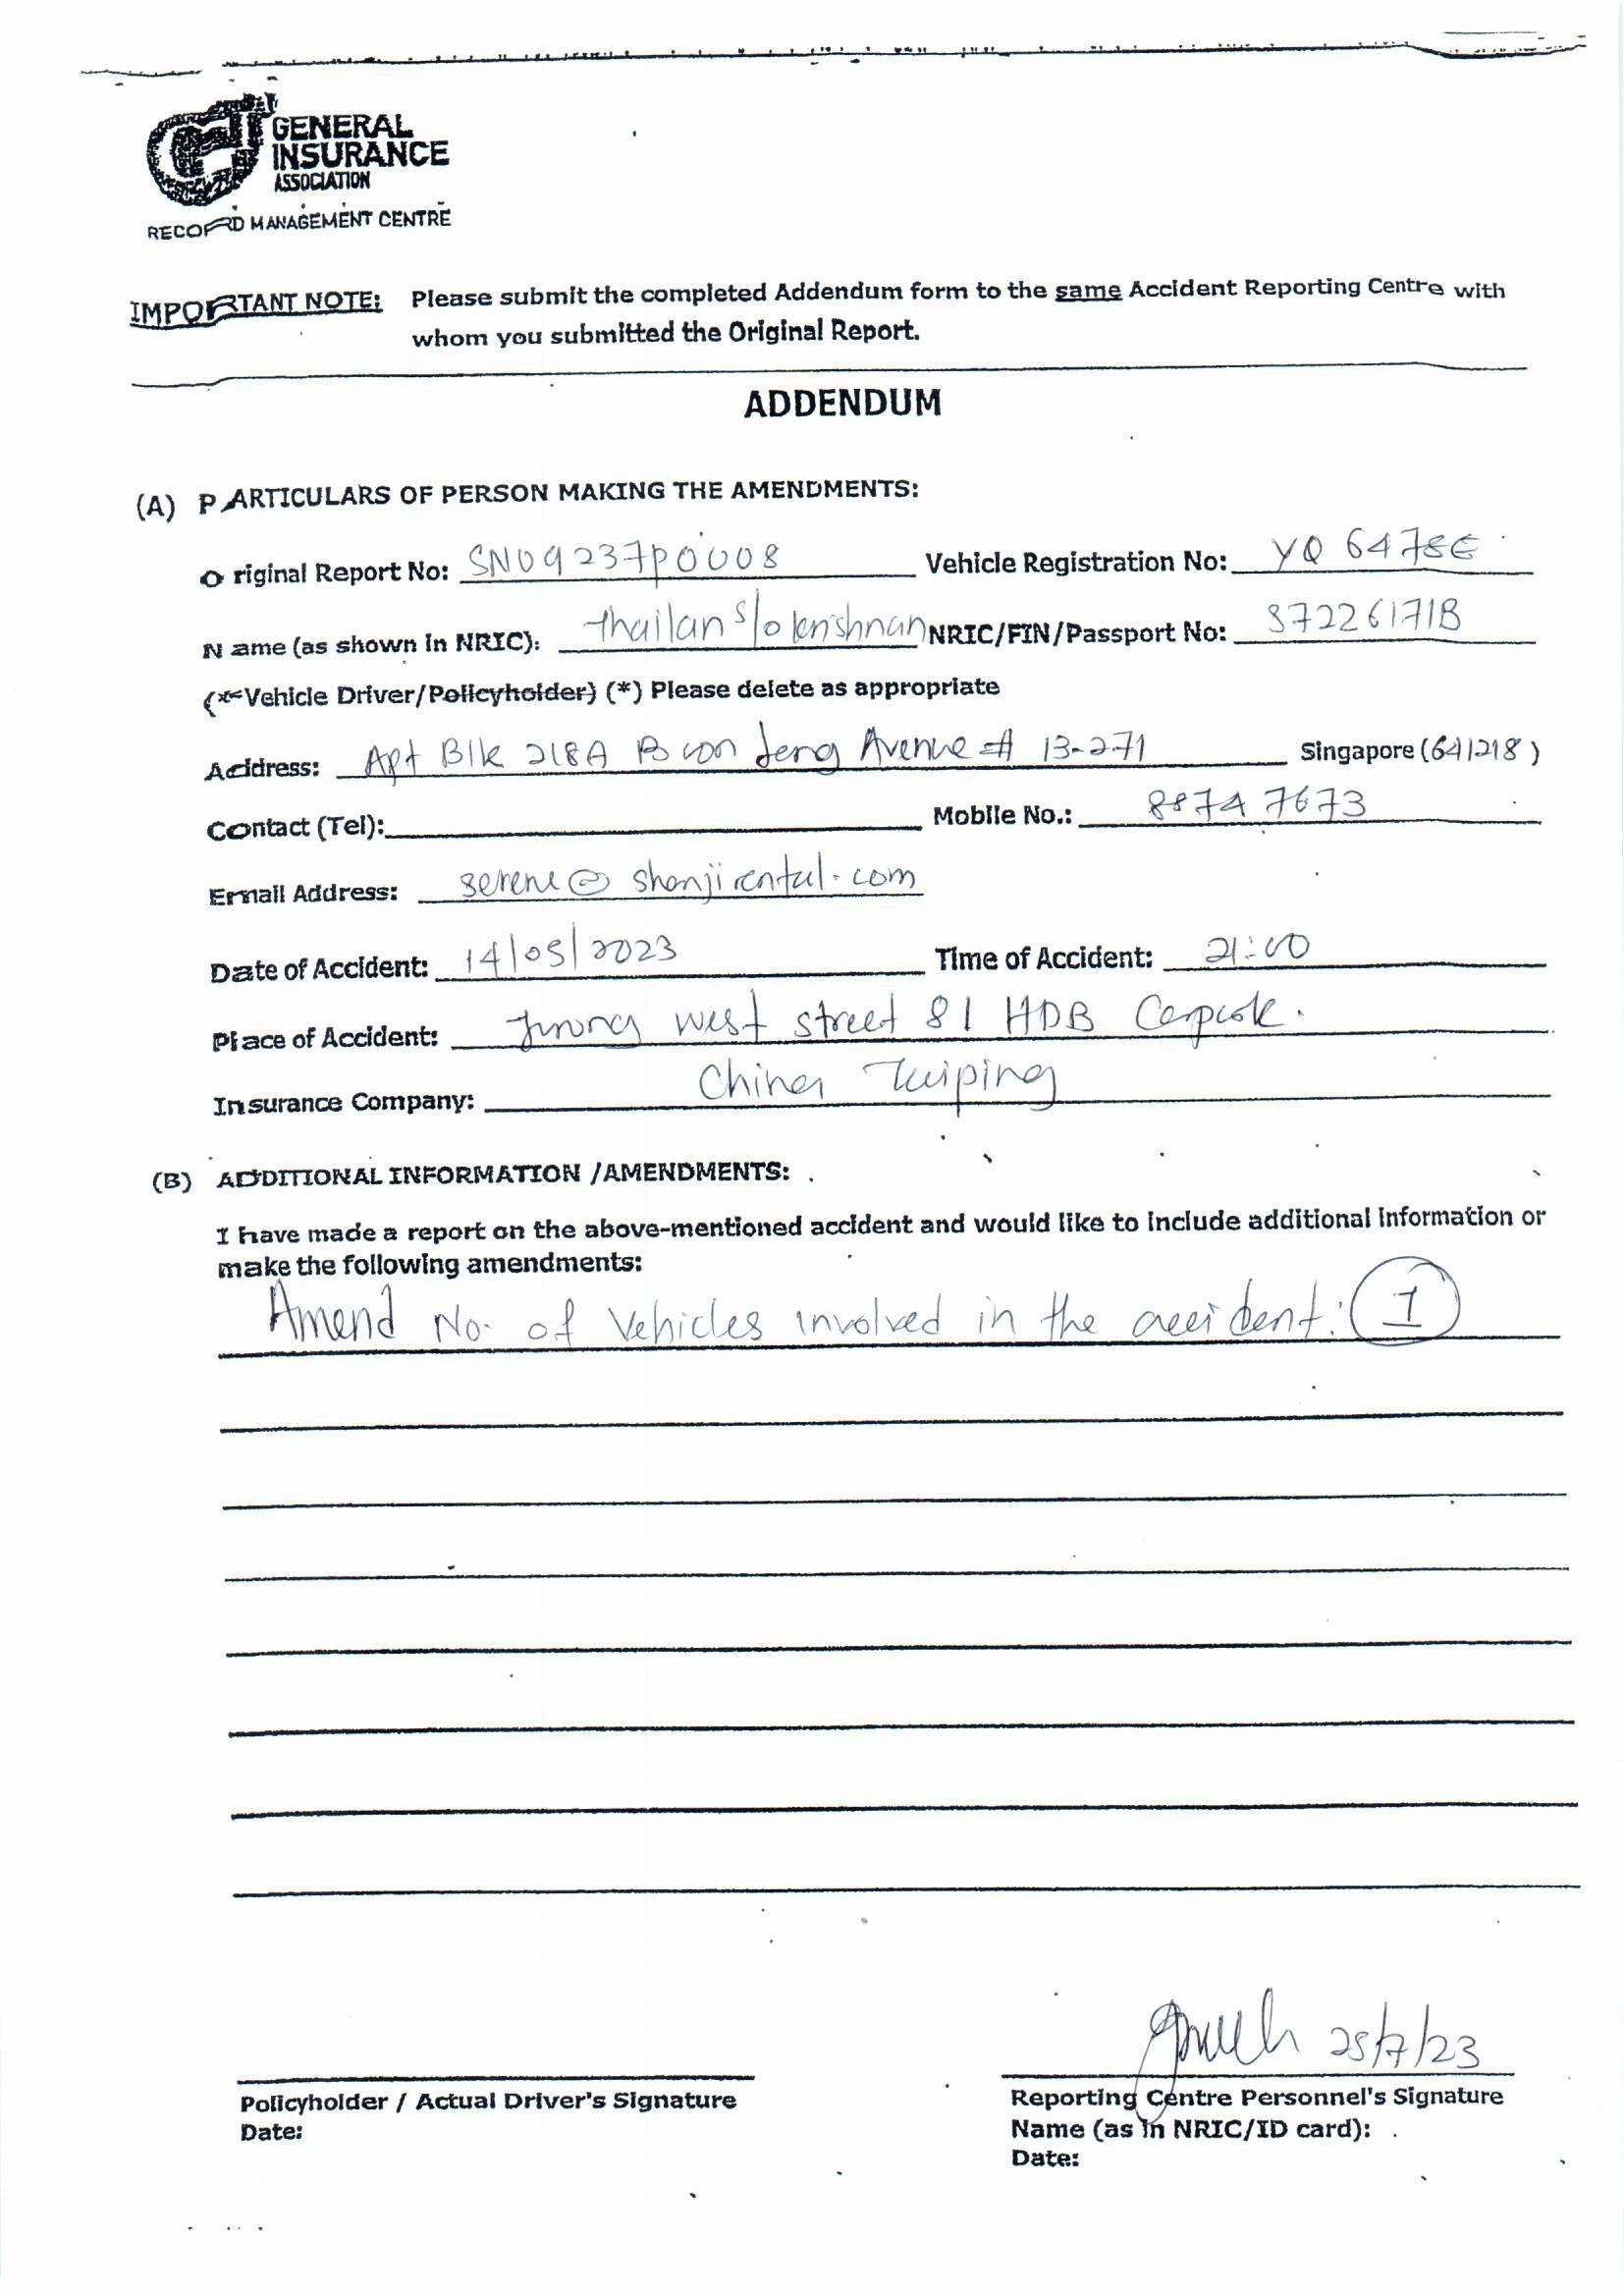 GENERAL
INSURANCE
ASSOCIATION
RECORD MANAGEMENT CENTRE
IMPORTANT NOTE: Please submit the completed Addendum form to the same Accident Reporting Centre with
whom you submitted the Original Report.
ADDENDUM
(A) PARTICULARS OF PERSON MAKING THE AMENDMENTS:
Original Report No: SN09237P0008 Vehicle Registration No: YQ 6478E
Name (as shown in NRIC): Thailan s/o krishnan NRIC/FIN/Passport No: S7226171B
(*Vehicle Driver/Policyholder) (*) Please delete as appropriate
Address: Apt Blk 218A Boon Leng Avenue # 13-271 Singapore (641218)
Contact (Tel): Mobile No.: 8874 7673
Email Address: serene@shanjirental.com
Date of Accident: 14/05/2023 Time of Accident: 21:00
Place of Accident: Jurong west street 81 HDB Carpark.
Insurance Company: China Taiping
(B) ADDITIONAL INFORMATION /AMENDMENTS:
I have made a report on the above-mentioned accident and would like to include additional information or
make the following amendments:
Amend No. of Vehicles involved in the accident: 1
25/7/23
Policyholder / Actual Driver's Signature Reporting Centre Personnel's Signature
Date: Name (as in NRIC/ID card):
Date: